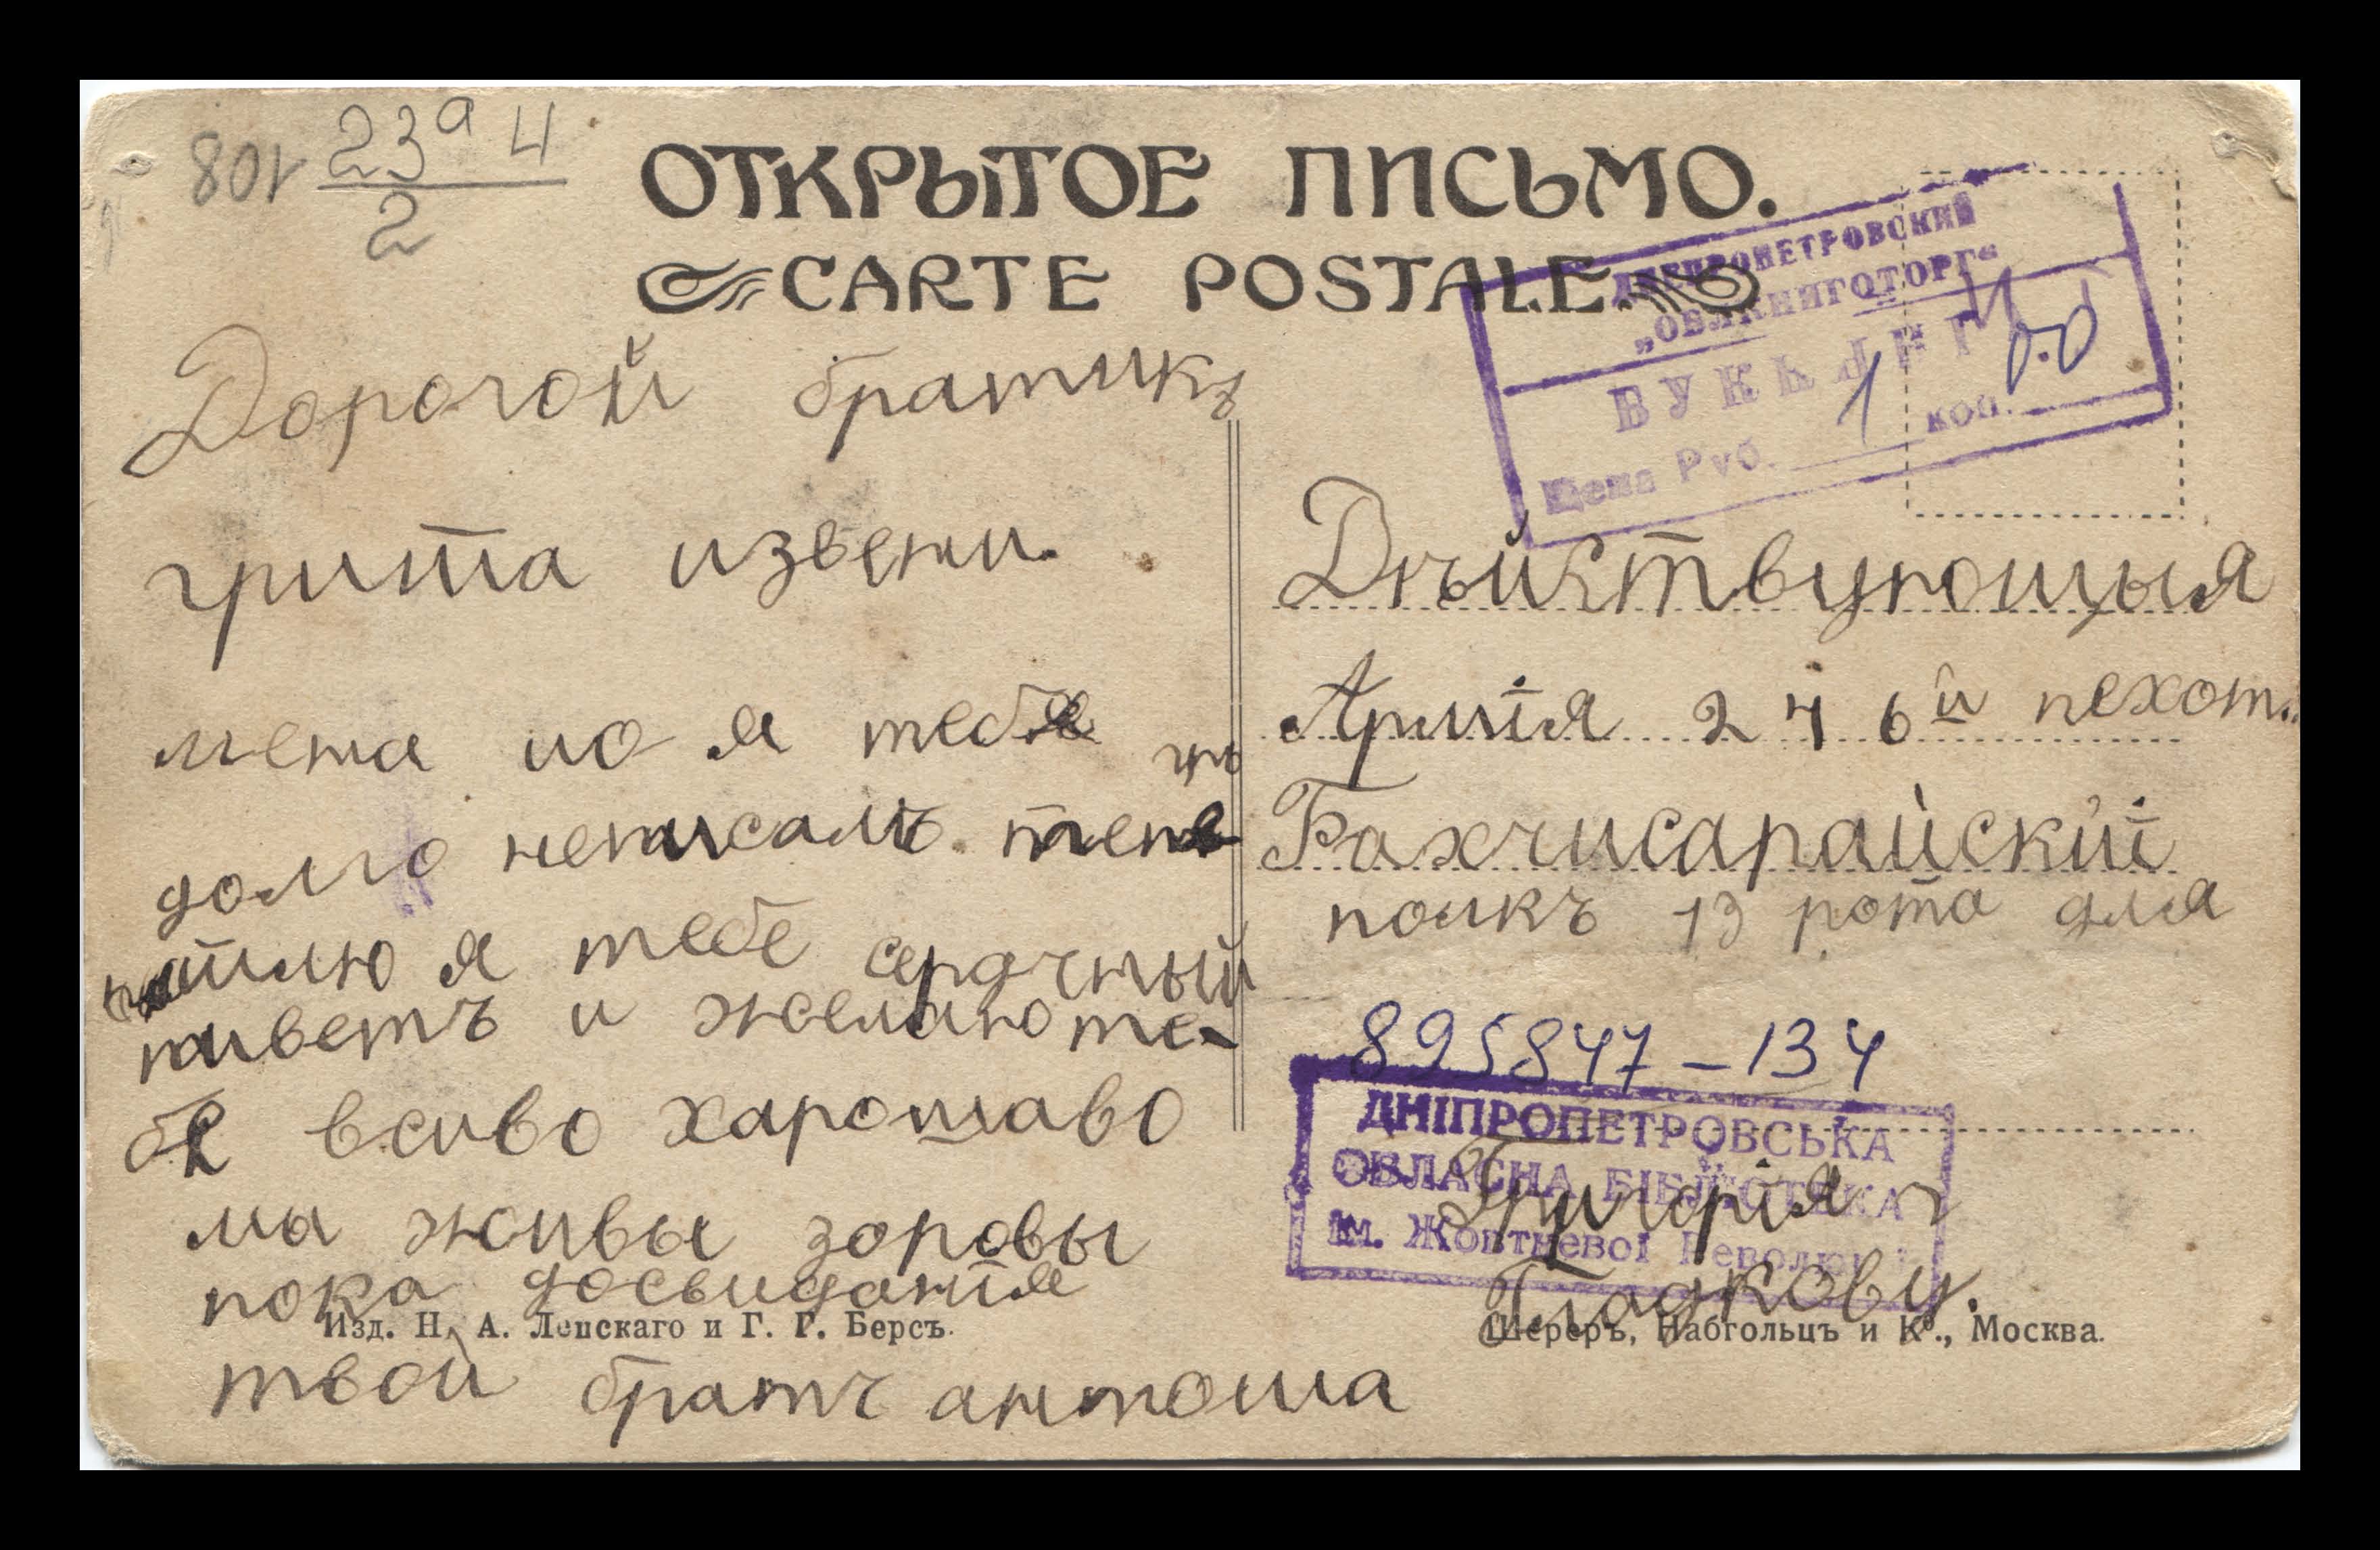 801 23а 4
2
ОТКРЫТОЕ ПИСЬМО.
CARTE POSTALE.
ДНЕПРОПЕТРОВСКИЙ
„ОБЛКНИГОТОРГ“
БУКЫНЕГИ
Цена Руб. 1 коп. 00
Дорогой братикъ
гриша извени
меня що я тебя
долго неписалъ тепе
гръ
пашлю я тебе сердчный
пиветъ и желаю те-
бе всиво харошаво
мы живы зоровы
пока досвиданія
твой братъ антоша
Дѣйствующыя
Армія 246й пехот.
Бахчисарайский
полкъ 13 рота для
895847-134
ДНІПРОПЕТРОВСЬКА
ОБЛАСНА БІБЛІОТЕКА
Ім. Жовтневої Революції
Григорія г
Гладкову.
Изд. Н. А. Лепскаго и Г. Г. Берсъ.
Шереръ, Набгольцъ и Ко., Москва.